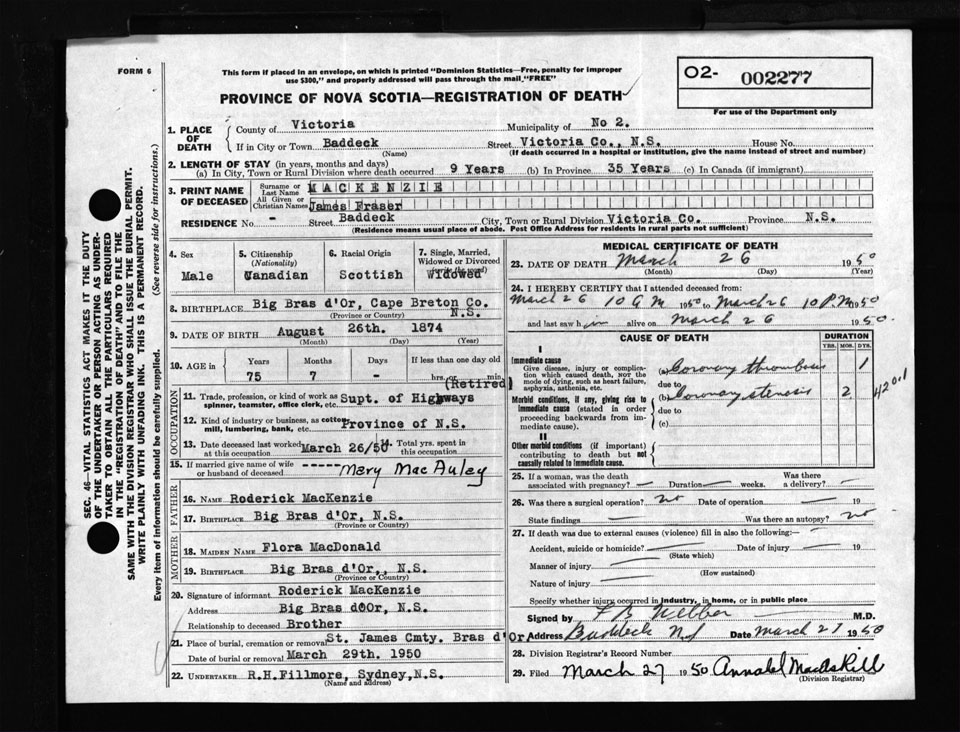 FORM 6
This form if placed in an envelope, on which is printed "Dominion Statistics—Free, penalty for improper
use $300," and properly addressed will pass through the mail "FREE"
PROVINCE OF NOVA SCOTIA—REGISTRATION OF DEATH
O2- 002277
For use of the Department only
1. PLACE OF DEATH
County of Victoria Municipality of No 2.
If in City or Town Baddeck Street Victoria Co., N.S. House No.
(Name) (If death occurred in a hospital or institution, give the name instead of street and number)
2. LENGTH OF STAY (in years, months and days)
(a) In City, Town or Rural Division where death occurred 9 Years (b) In Province 35 Years (c) In Canada (if immigrant)
3. PRINT NAME OF DECEASED
Surname or Last Name MACKENZIE
All Given or Christian Names James Fraser
RESIDENCE No. - Street Baddeck City, Town or Rural Division Victoria Co. Province N.S.
(Residence means usual place of abode. Post Office Address for residents in rural parts not sufficient)
4. Sex Male
5. Citizenship (Nationality) Canadian
6. Racial Origin Scottish
7. Single, Married, Widowed or Divorced (write the word) Widowed
8. BIRTHPLACE Big Bras d'Or, Cape Breton Co. N.S.
(Province or Country)
9. DATE OF BIRTH August 26th. 1874
(Month) (Day) (Year)
10. AGE in Years 75 Months 7 Days - If less than one day old hrs. or min.
OCCUPATION
(Retired)
11. Trade, profession, or kind of work as spinner, teamster, office clerk, etc. Supt. of Highways
12. Kind of industry or business, as cotton mill, lumbering, bank, etc. Province of N.S.
13. Date deceased last worked at this occupation March 26/50 14. Total yrs. spent in this occupation
15. If married give name of wife or husband of deceased ----- Mary MacAuley
FATHER
16. NAME Roderick MacKenzie
17. BIRTHPLACE Big Bras d'Or, N.S.
(Province or Country)
MOTHER
18. MAIDEN NAME Flora MacDonald
19. BIRTHPLACE Big Bras d'Or,, N.S.
(Province or Country)
20. Signature of informant Roderick MacKenzie
Address Big Bras dOOr, N.S.
Relationship to deceased Brother
21. Place of burial, cremation or removal St. James Cmty. Bras d'Or
Date of burial or removal March 29th. 1950
22. UNDERTAKER R.H.Fillmore, Sydney,N.S.
(Name and address)
MEDICAL CERTIFICATE OF DEATH
23. DATE OF DEATH March 26 1950
(Month) (Day) (Year)
24. I HEREBY CERTIFY that I attended deceased from:
March 26 10 A M 1950 to March 26 10 P.M 1950
and last saw him alive on March 26 1950.
CAUSE OF DEATH
DURATION
YRS. MOS. DYS.
I
Immediate cause
Give disease, injury or complication which caused death, NOT the mode of dying, such as heart failure, asphyxia, asthenia, etc.
(a) Coronary thrombosis 1
due to
Morbid conditions, if any, giving rise to immediate cause (stated in order proceeding backwards from immediate cause).
(b) Coronary stenosis 2
420.1
due to
(c)
II
Other morbid conditions (if important) contributing to death but not causally related to immediate cause.
25. If a woman, was the death associated with pregnancy? — Duration — weeks. Was there a delivery? —
26. Was there a surgical operation? no Date of operation — 19
State findings — Was there an autopsy? no
27. If death was due to external causes (violence) fill in also the following:—
Accident, suicide or homicide? — Date of injury — 19
(State which)
Manner of injury —
(How sustained)
Nature of injury —
Specify whether injury occurred in industry, in home, or in public place
Signed by F B Webber M.D.
Address Baddeck NS Date March 27 1950
28. Division Registrar's Record Number
29. Filed March 27 1950 Annabel MacAskill
(Division Registrar)
SEC. 46—VITAL STATISTICS ACT MAKES IT THE DUTY
OF THE UNDERTAKER OR PERSON ACTING AS UNDER-
TAKER TO OBTAIN ALL THE PARTICULARS REQUIRED
IN THE "REGISTRATION OF DEATH" AND TO FILE THE
SAME WITH THE DIVISION REGISTRAR WHO SHALL ISSUE THE BURIAL PERMIT.
WRITE PLAINLY WITH UNFADING INK. THIS IS A PERMANENT RECORD.
Every item of information should be carefully supplied. (See reverse side for instructions.)